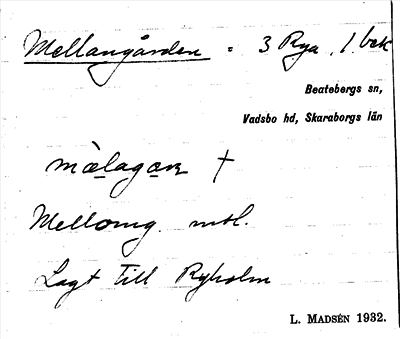 Mellangården = 3 Rya, 1. bek
Beatebergs sn,
Vadsbo hd, Skaraborgs län
mèlagaɴ †
Mellomg. mtl.
Lagt till Ryholm
L. MADSÉN 1932.